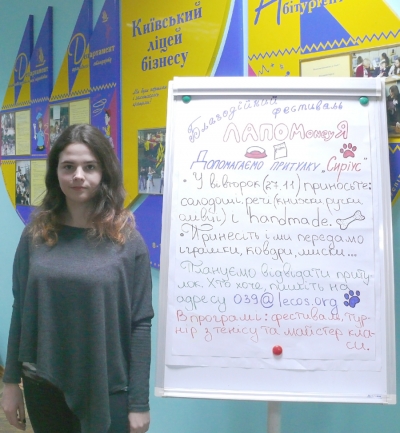 Київський
ліцей
бізнесу
Департамент
Абітурієнт
Благодійний
фестиваль
ЛАПОМогаЯ
Допомагаємо притулку „Сіріус"
• У вівторок (27.11) приносьте:
солодощі, речі (книжки, ручки
олівці) і handmade.
• Принесіть і ми передамо
іграшки, ковдри, миски...
Плануємо відвідати приту-
лок. Хто хоче, пишіть на
адресу 039@lecos.org
В програмі: фестиваль, тур-
нір з тенісу та майстер кла-
си.